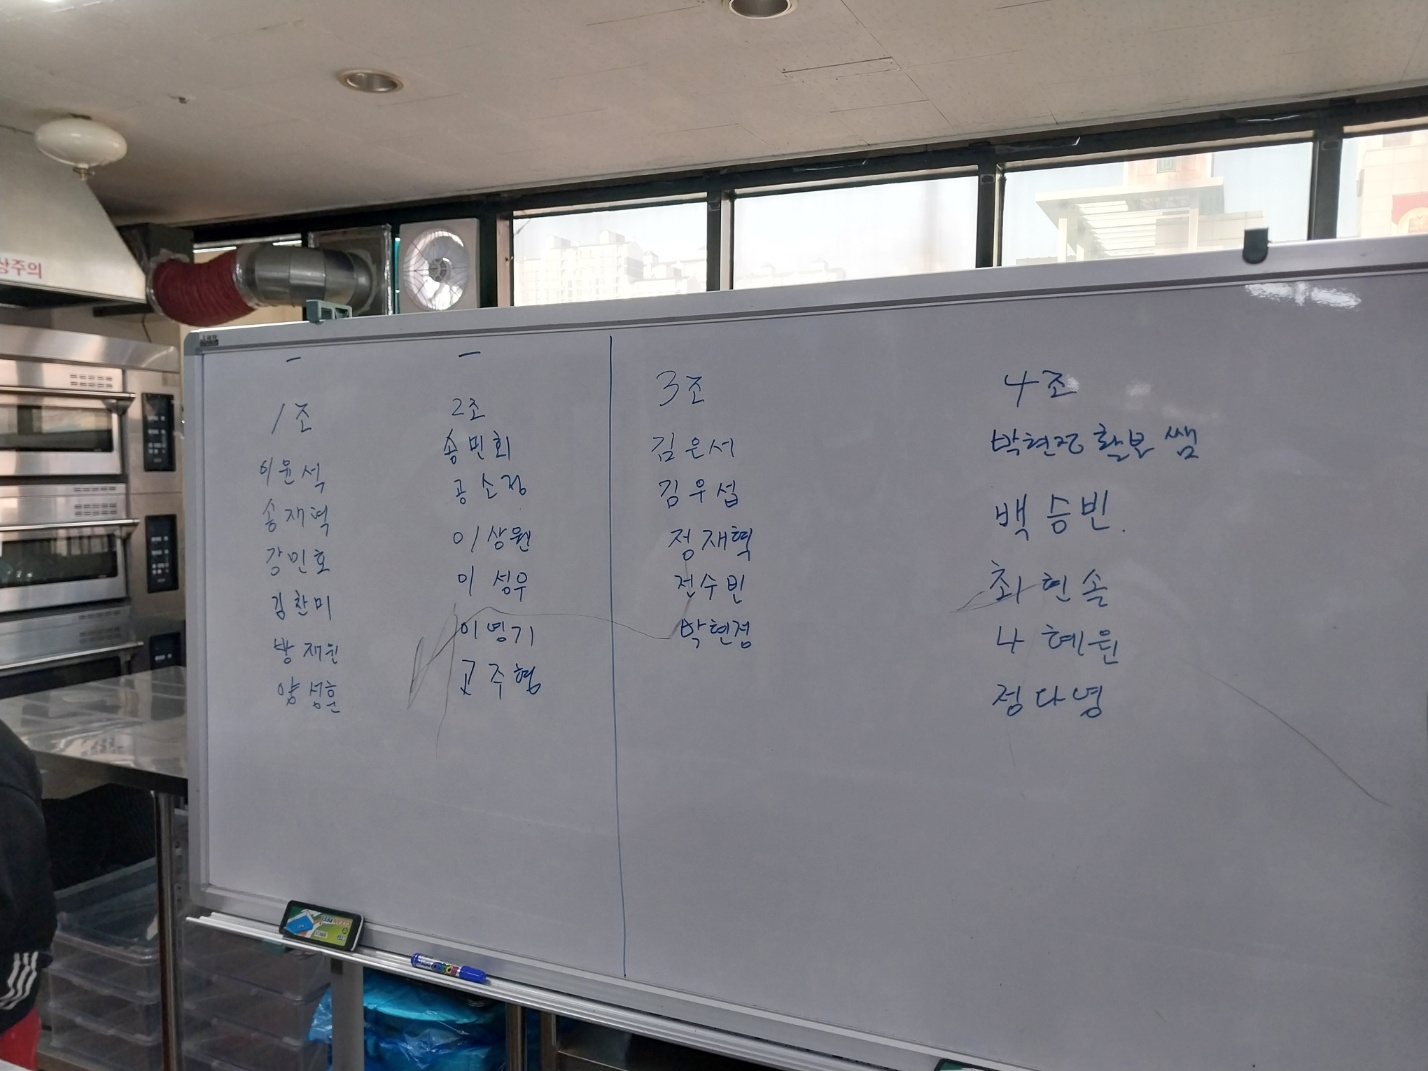 상주의
1조
이윤석
송재혁
강민호
김찬미
방재원
양성훈
2조
송민희
공소정
이상원
이성우
이명기
고주형
3조
김은서
김우섭
정재혁
전수빈
박현점
4조
박현정 활보 쌤
백승빈.
최현솔
나혜원
정다영